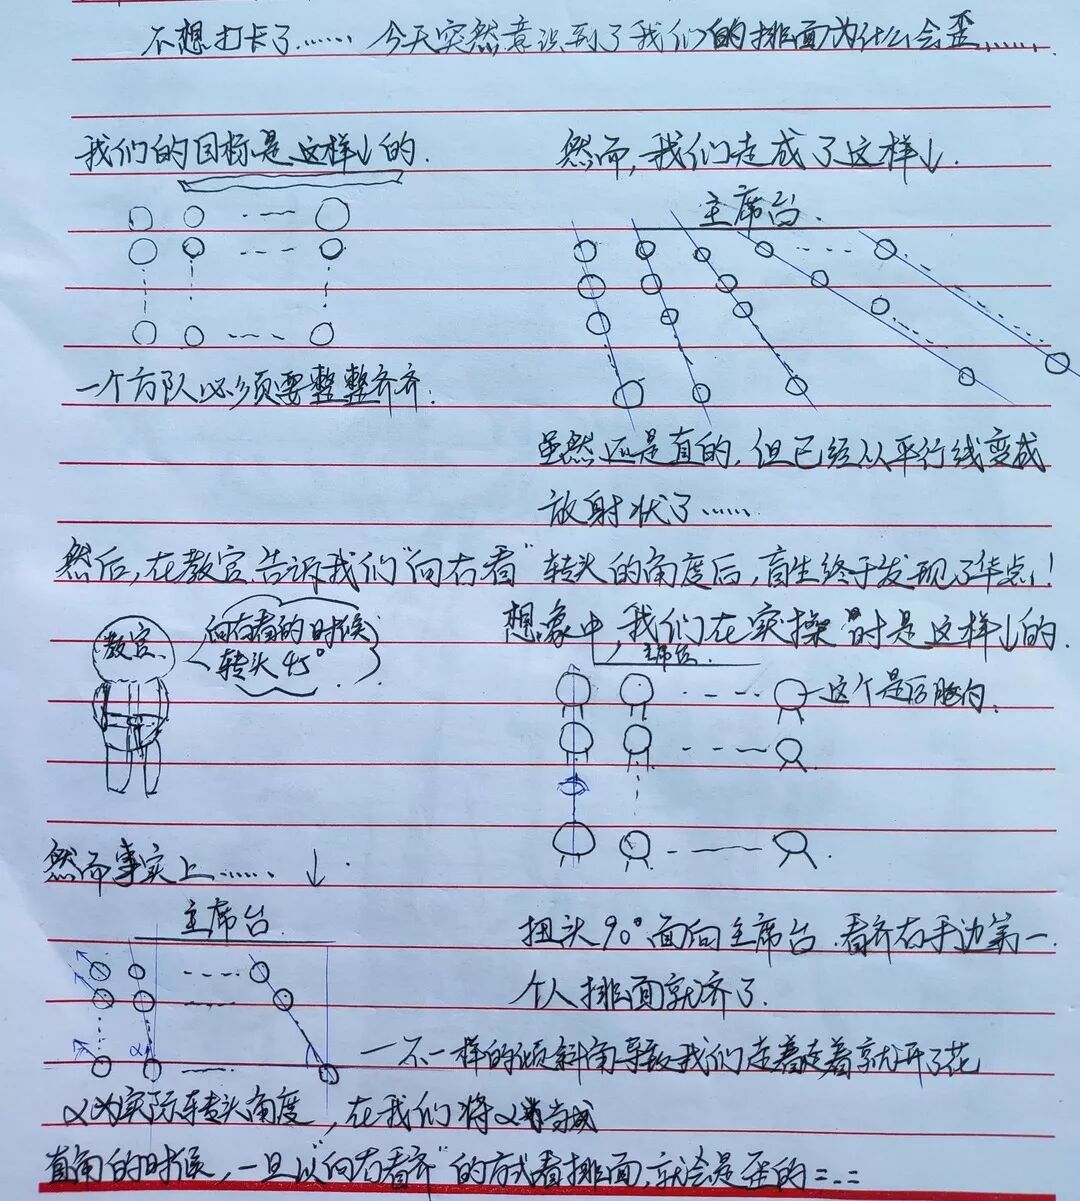 不想打卡了…… 今天突然意识到了我们的排面为什么会歪……
我们的目标是这样↓的.
然而,我们走成了这样↓.
主席台.
一个方队必须要整整齐齐.
虽然还是直的,但已经从平行线变成
放射状了……
然后,在教官告诉我们“向右看”转头的角度后,盲生终于发现了华点!
教官
向右看的时候
转头45°
想象中,我们在实操时是这样↓的.
主席台.
这个是后脑勺.
然而事实上…… ↓.
主席台.
扭头90°面向主席台.看齐右手边第一
个人排面就齐了.
α
—不一样的倾斜角导致我们走着走着就开了花
α为实际转头角度,在我们将α当成
直角的时候,一旦以“向右看齐”的方式看排面,就会是歪的=_=